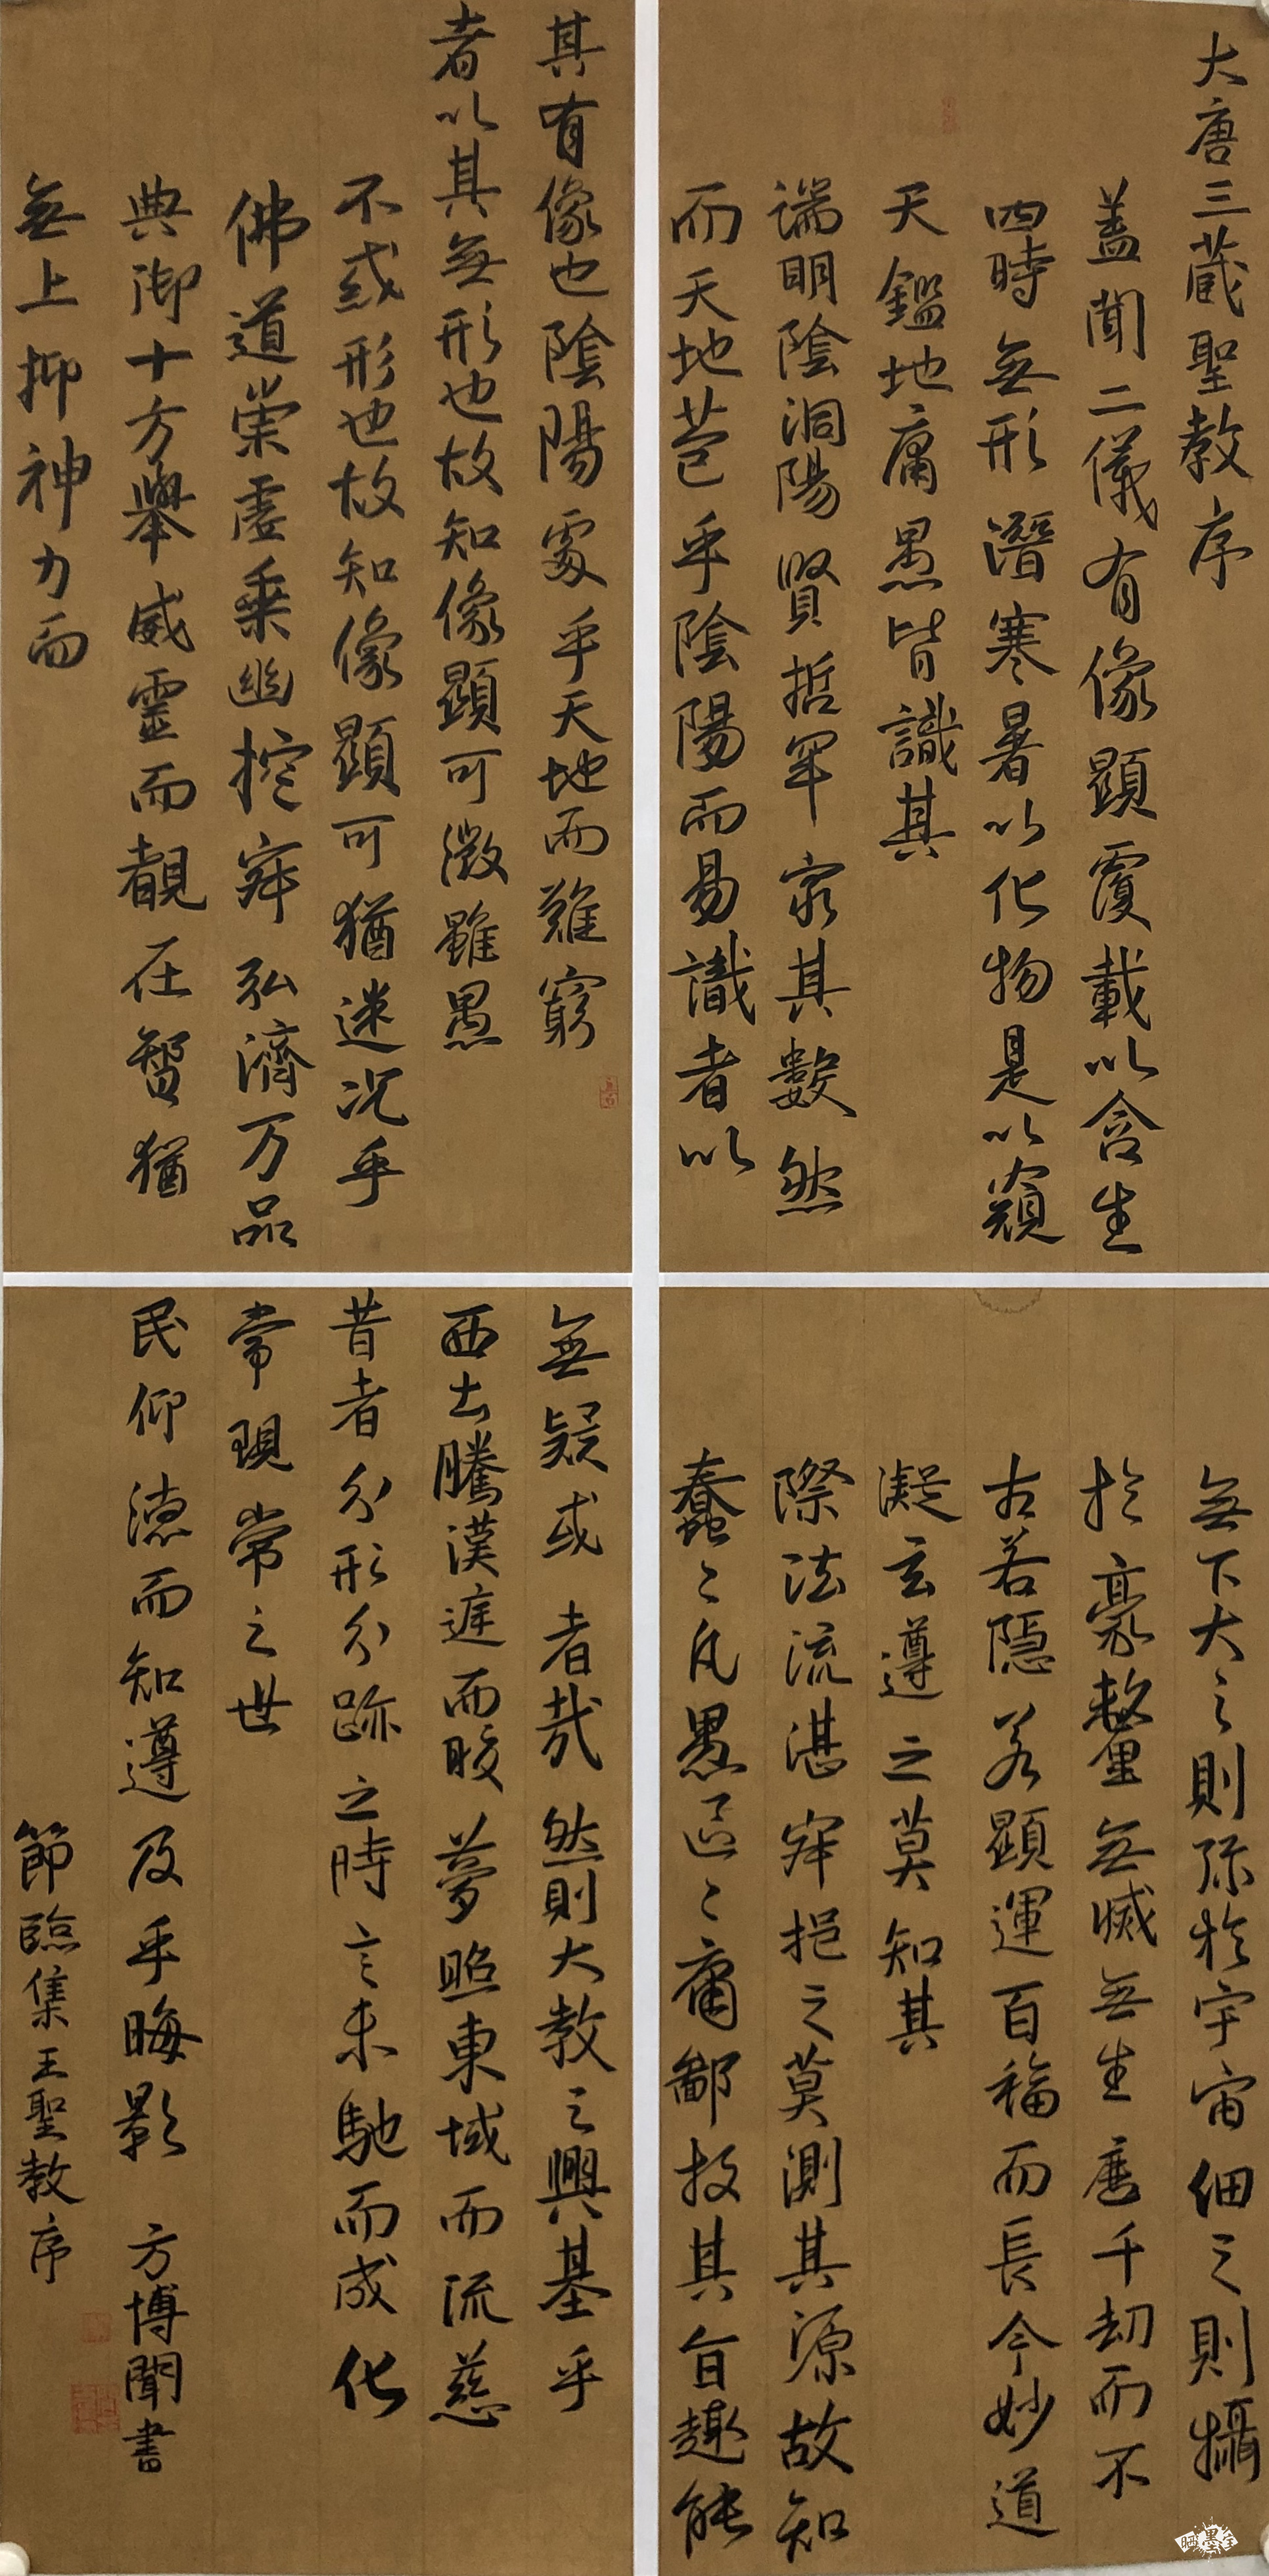 大唐三蔵聖教序
盖聞二儀有像顯覆載以含生
四時無形潛寒暑以化物是以窺
天鑑地庸愚皆識其
端明陰洞陽賢哲罕窮其數然
而天地苞乎陰陽而易識者以
其有像也陰陽處乎天地而難窮
者以其無形也故知像顯可徵雖愚
不或形也故知像顯可猶迷況乎
佛道崇虛乗幽控寂弘濟万品
典御十方舉威靈而覩在智猶
無上抑神力而
無下大之則弥於宇宙細之則攝
於豪釐無滅無生歷千劫而不
古若隱若顯運百福而長今妙道
凝玄遵之莫知其
際法流湛寂挹之莫測其源故知
蠢々凡愚區々庸鄙投其旨趣能
無疑或者哉然則大教之興基乎
西土騰漢遅而晈夢照東域而流慈
昔者分形分跡之時言未馳而成化
常現常之世
民仰德而知遵及乎晦影 方博聞書
節臨集王聖教序
晒墨宝